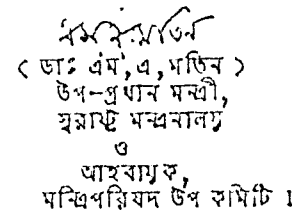 এম এ মতিন
( ডাঃ এম, এ, মতিন )
উপ-প্রধান মন্ত্রী,
স্বরাষ্ট্র মন্ত্রনালয়
ও
আহবায়ক,
মন্ত্রিপরিষদ উপ কমিটি ।